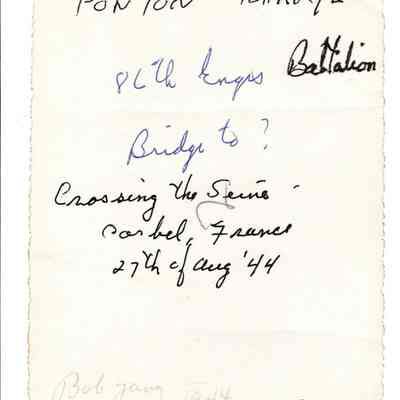 PONTON
86th Engrs Battalion
Bridge to ?
Crossing the Seine
Corbel, France
27th of Aug '44
Bob